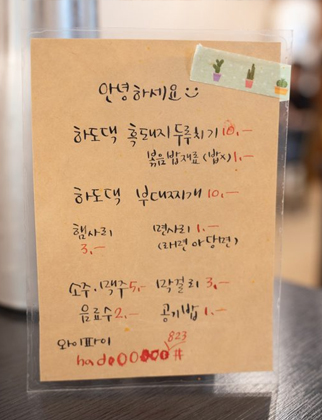 안녕하세요
하도댁 흑돼지두루치기 10.-
볶음밥재료(밥x) 1.-
하도댁 부대찌개 10.-
햄사리 3.-
면사리 1.-
(라면 or 당면)
소주.맥주 5.- 막걸리 3.-
음료수 2.- 공기밥 1.-
와이파이
823